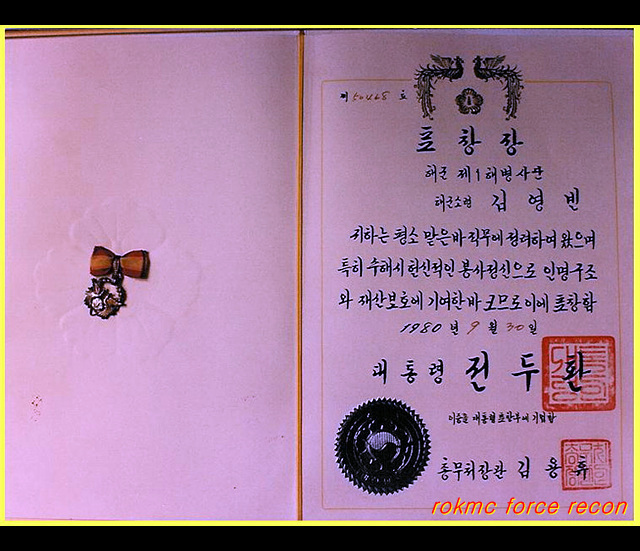 제 50468 호
표창장
해군 제1해병사단
해군소령 김영빈
귀하는 평소 맡은바 직무에 정려하여 왔으며
특히 수해시 헌신적인 봉사정신으로 인명구조
와 재산보호에 기여한바 크므로 이에 표창함
1980년 9월 30일
대통령 전두환
이증을 대통령표창부에 기입함
총무처장관 김용휴
rokmc force recon